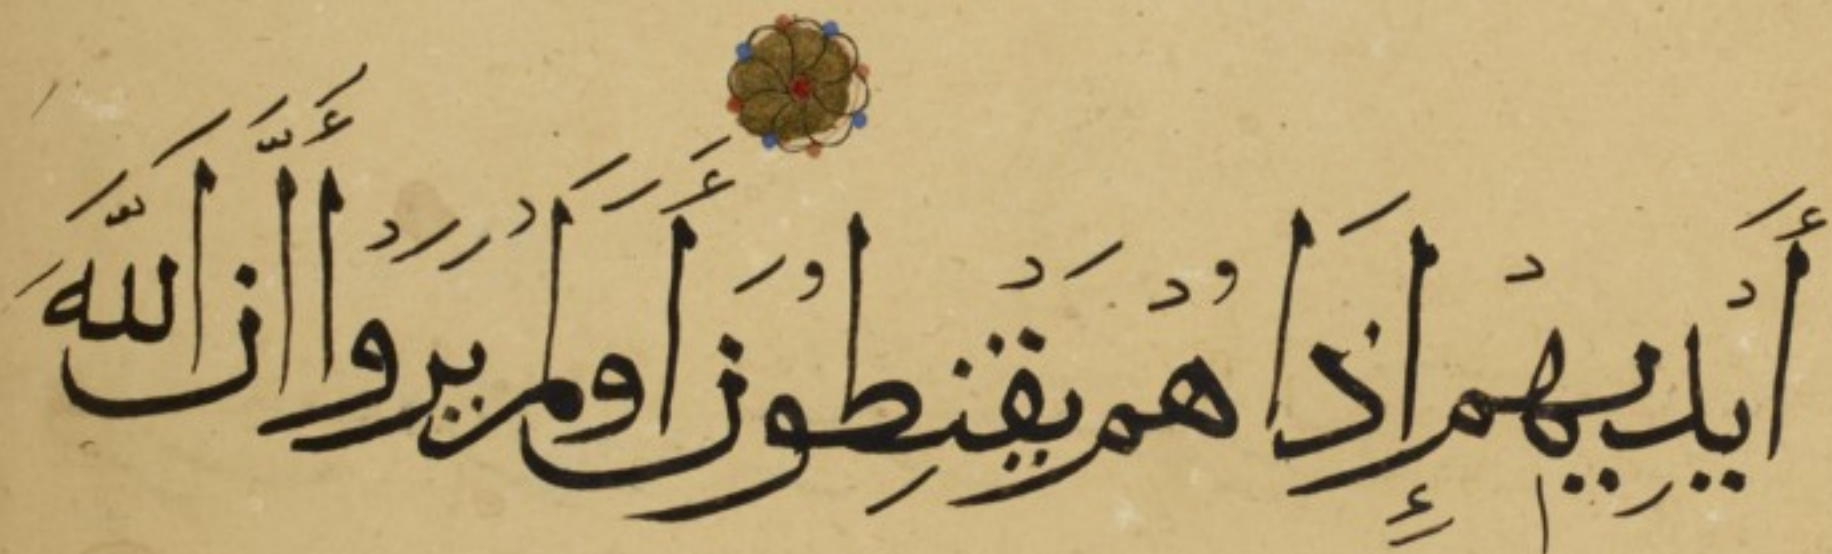 أَيْدِيهِمْ إِذَا هُمْ يَقْنِطُونَ أَوَلَمْ يَرَوْا أَنَّ اللَّهَ